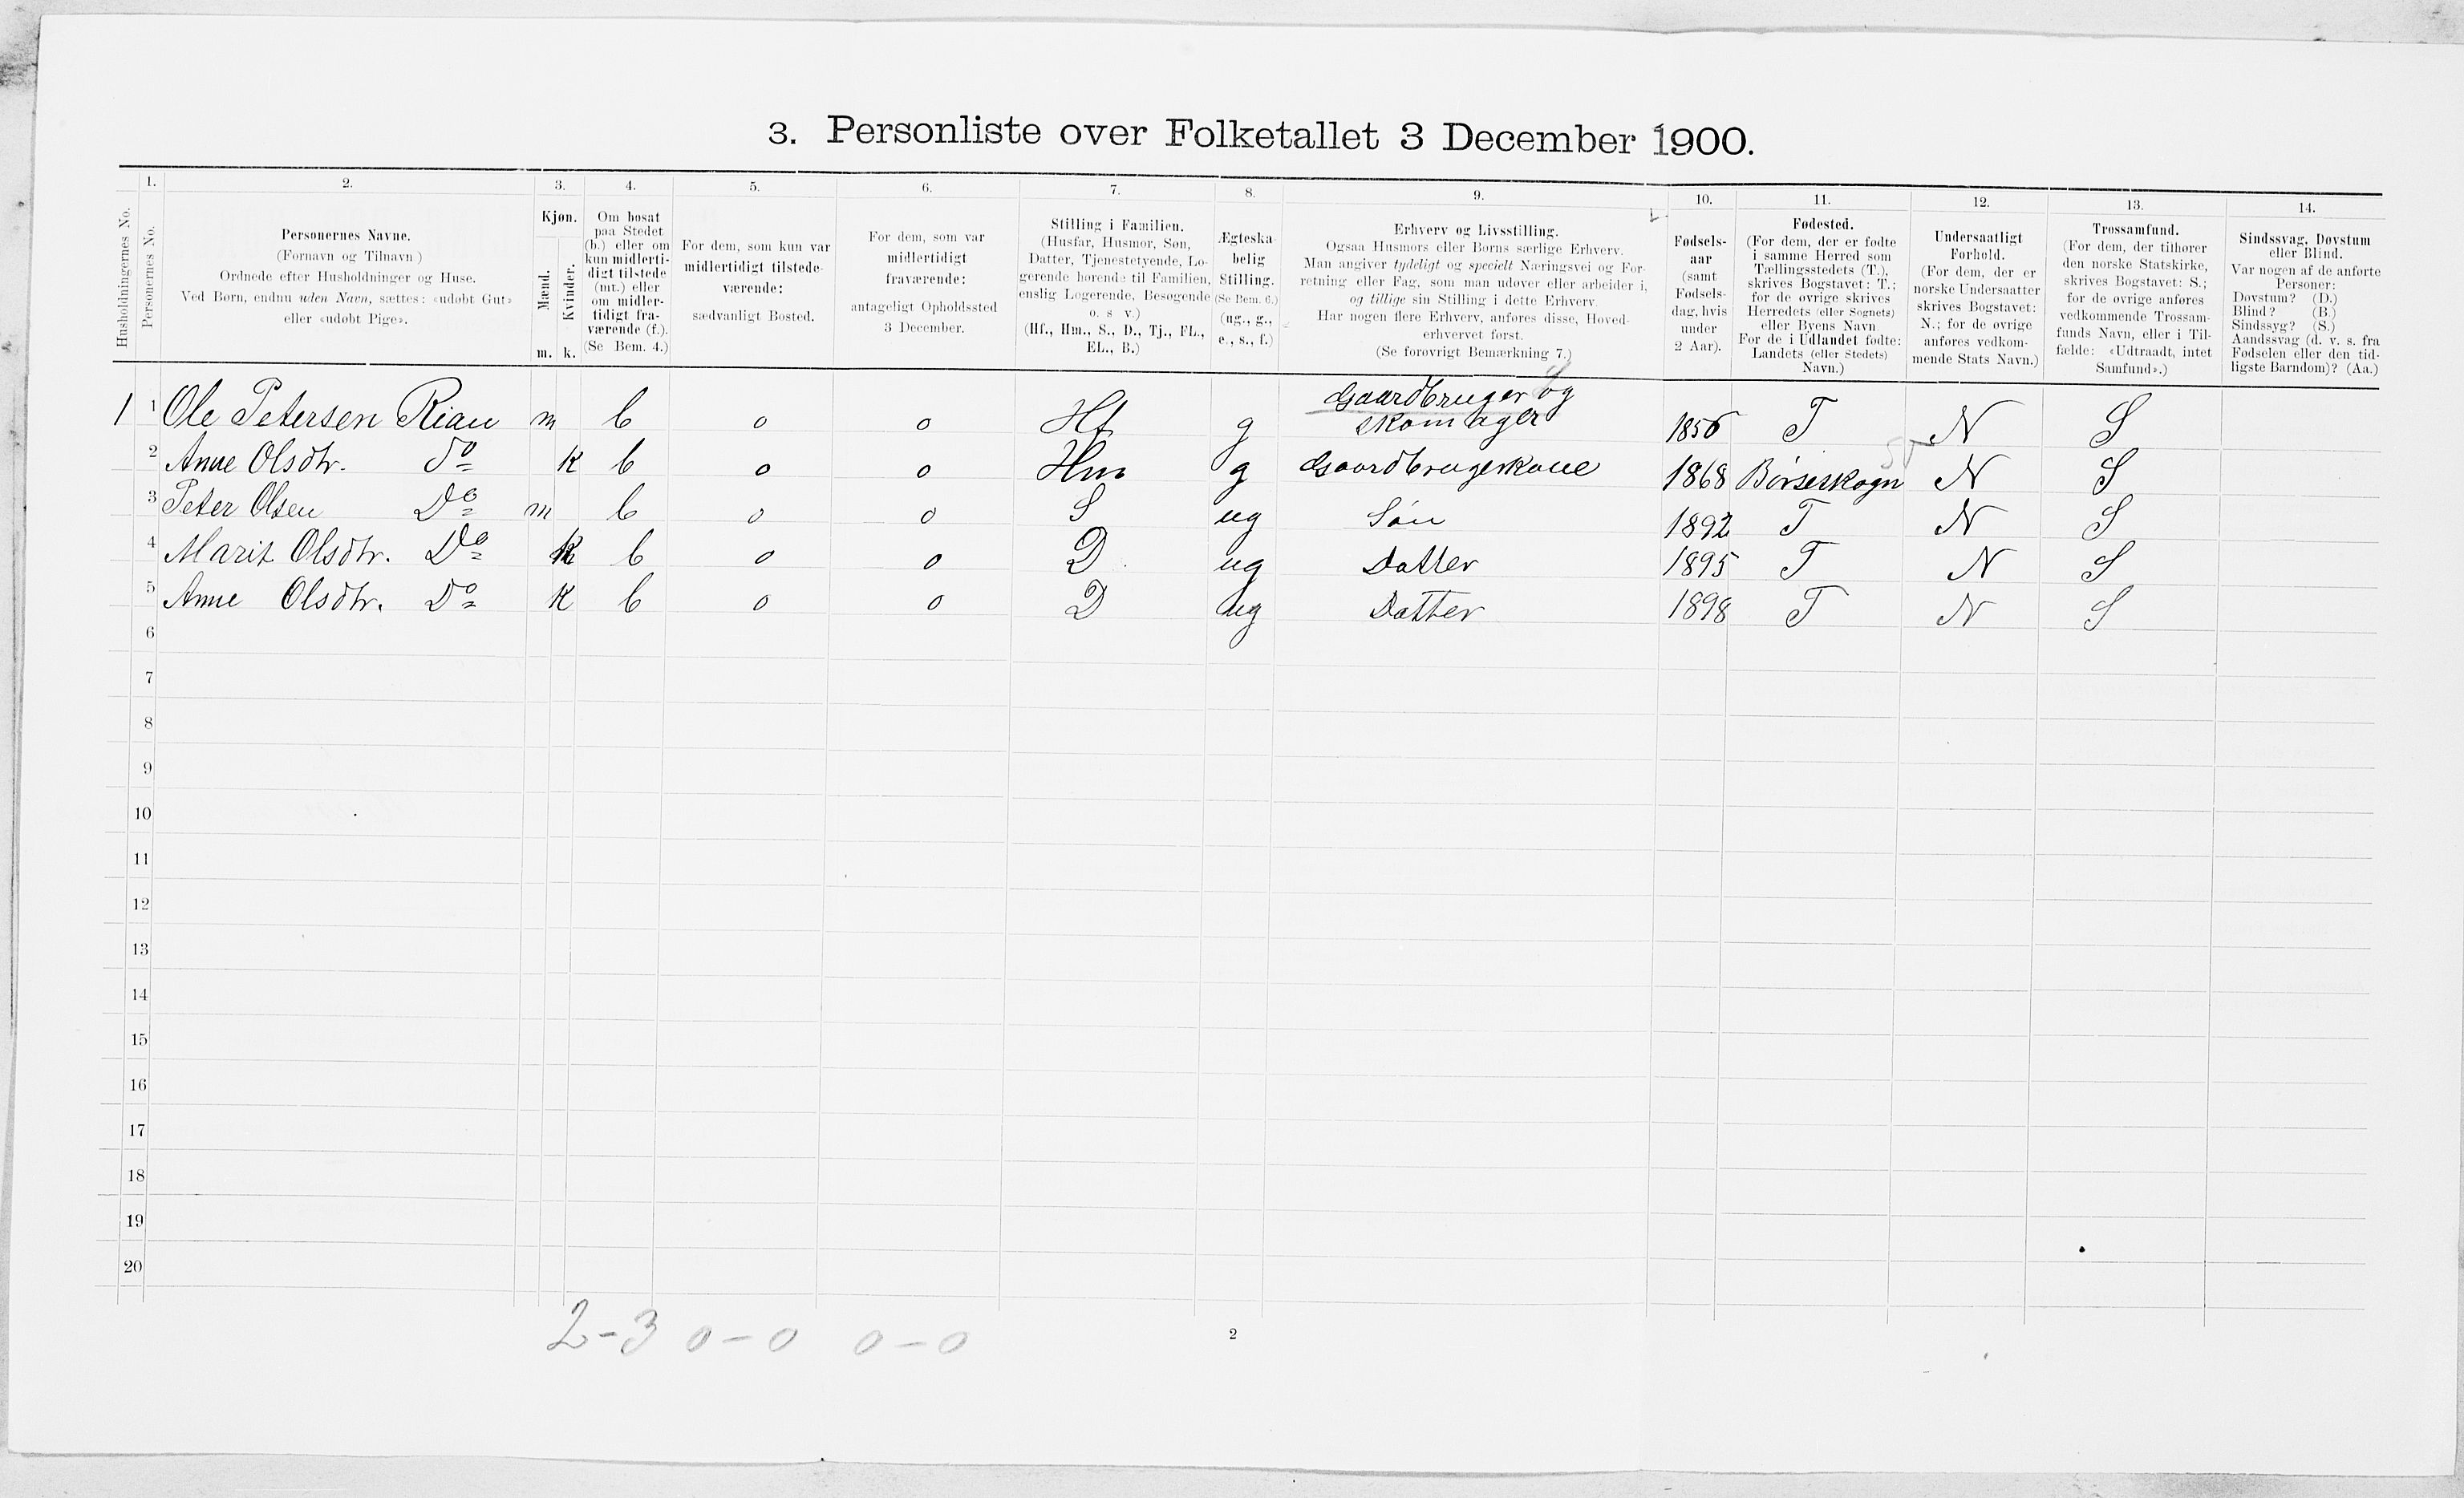 3. Personliste over Folketallet 3 December 1900.
1. 2. 3. 4. 5. 6. 7. 8. 9. 10. 11. 12. 13. 14.
Husholdningernes No.
Personernes No.
Personernes Navne.
(Fornavn og Tilnavn)
Ordnede efter Husholdninger og Huse.
Ved Børn, endnu uden Navn, sættes: «udøbt Gut»
eller «udøbt Pige».
Kjøn.
Mænd.
Kvinder.
m. k.
Om bosat
paa Stedet
(b.) eller om
kun midlerti-
digt tilstede
(mt.) eller
om midler-
tidigt fra-
værende (f.).
(Se Bem. 4.)
For dem, som kun var
midlertidigt tilstede-
værende:
sædvanligt Bosted.
For dem, som var
midlertidigt
fraværende:
antageligt Opholdssted
3 December.
Stilling i Familien.
(Husfar, Husmor, Søn,
Datter, Tjenestetyende, Lo-
gerende hørende til Familien,
enslig Logerende, Besøgende
o. s v.)
(Hf., Hm., S., D., Tj., FL.,
EL., B.)
Ægteska-
belig
Stilling.
(Se Bem. 6.)
(ug., g.,
e., s., f.)
Erhverv og Livsstilling.
Ogsaa Husmors eller Børns særlige Erhverv.
Man angiver tydeligt og specielt Næringsvei og For-
retning eller Fag, som man udøver eller arbeider i,
og tillige sin Stilling i dette Erhverv.
Har nogen flere Erhverv, anføres disse, Hoved-
erhvervet først.
(Se forøvrigt Bemærkning 7.)
Fødsels-
aar
(samt
Fødsels-
dag, hvis
under
2 Aar).
Fødested.
(For dem, der er fødte
i samme Herred som
Tællingsstedets (T.),
skrives Bogstavet: T.;
for de øvrige skrives
Herredets (eller Sognets)
eller Byens Navn
For de i Udlandet fødte:
Landets (eller Stedets)
Navn.)
Undersaatligt
Forhold.
(For dem, der er
norske Undersaatter
skrives Bogstavet:
N.; for de øvrige
anføres vedkom-
mende Stats Navn.)
Trossamfund.
(For dem, der tilhører
den norske Statskirke,
skrives Bogstavet: S.;
for de øvrige anføres
vedkommende Trossam-
funds Navn, eller i Til-
fælde: «Udtraadt, intet
Samfund».)
Sindssvag, Døvstum
eller Blind.
Var nogen af de anførte
Personer:
Døvstum? (D.)
Blind? (B.)
Sindssyg? (S.)
Aandssvag (d. v. s. fra
Fødselen eller den tid-
ligste Barndom)? (Aa.)
1 1 Ole Petersen Rian m b 0 0 Hf g Gaardbruger og
skomager 1856 T N S
2 Anne Olsdtr. do k b 0 0 Hm g Gaardbrugerkone 1868 Børseskogn N S
3 Peter Olsen Do m b 0 0 S ug Søn 1892 T N S
4 Marit Olsdtr. Do k b 0 0 D ug Datter 1895 T N S
5 Anne Olsdtr. Do k b 0 0 D ug Datter 1898 T N S
6
7
8
9
10
11
12
13
14
15
16
17
18
19
20
2-3 0-0 0-0
2